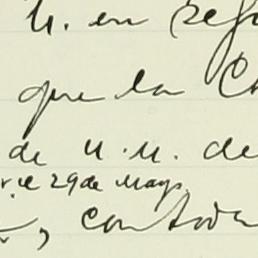 U. en
que la
de U.U. de
29 de Mayo
, con toda